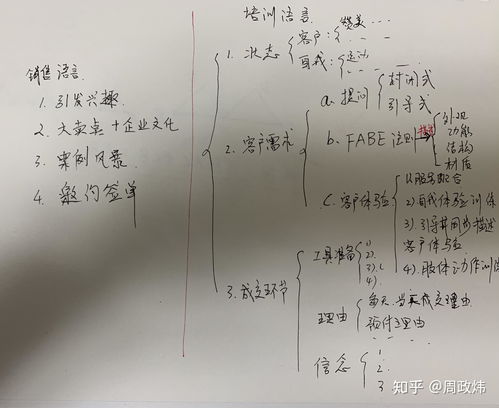 销售语言
1. 引发兴趣
2. 大卖点+企业文化
3. 案例风景
4. 邀约签单
培训语言
1. 状态
客户：赞美……
自我：运动
2. 客户需求
a. 提问
封闭式
引导式
b. FABE 法则
外观
功能
结构
材质
c. 客户体验
1) 服务配合
2) 自我体验训练
3). 引导其同步描述
客户体验
4). 肢体动作训练
3. 成交环节
工具准备
1)
2).
3).
4).
理由
每天、当天成交理由
预付理由
信念
1
2.
3
知乎 @周政炜